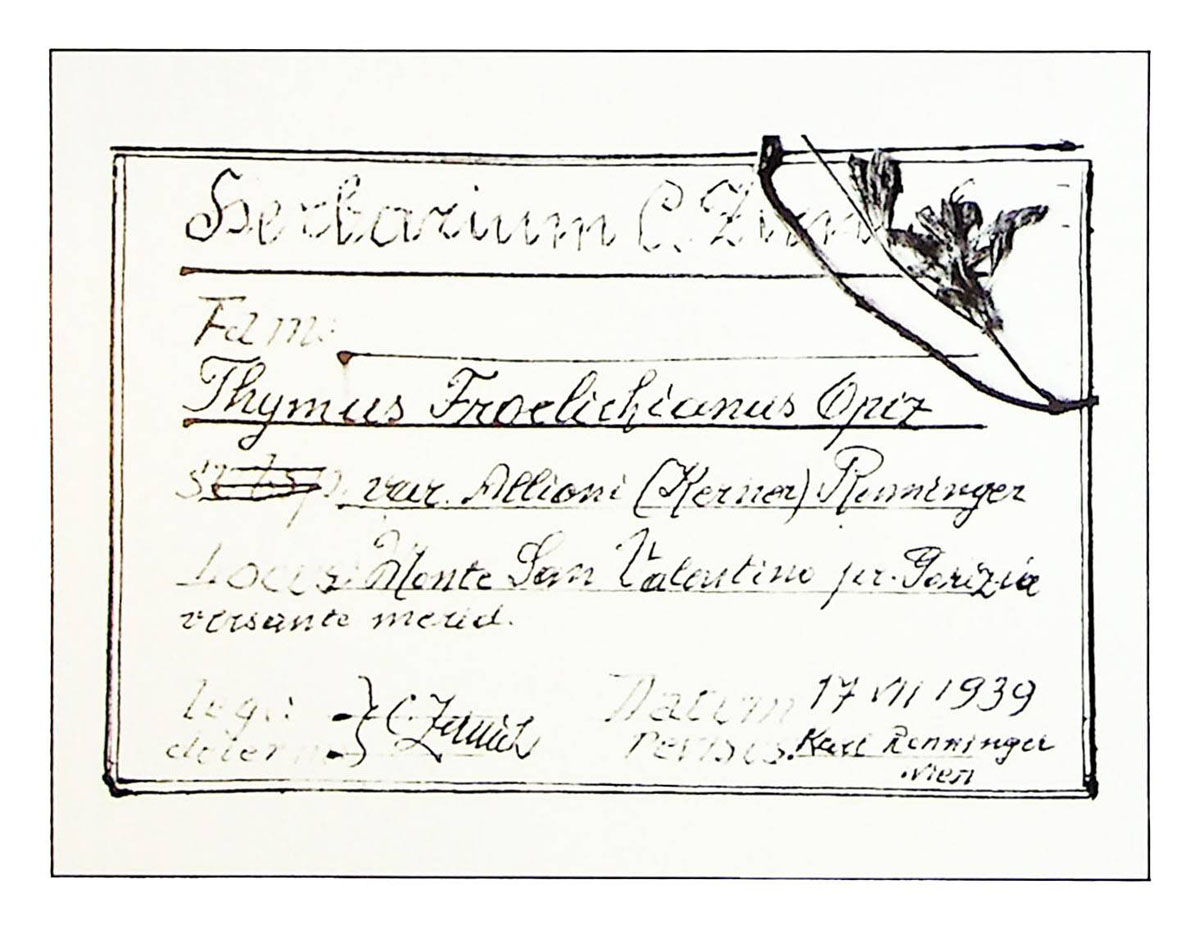 Herbarium C.
Fam:
Thymus Froelichianus Opiz
var. Allioni (Kerner) Ronninger
Locus: Monte San Valentino pr. Gorizia
versante merid.
leg.: Datum 17 VII 1939
determ. revisis. Karl Ronninger
Wien